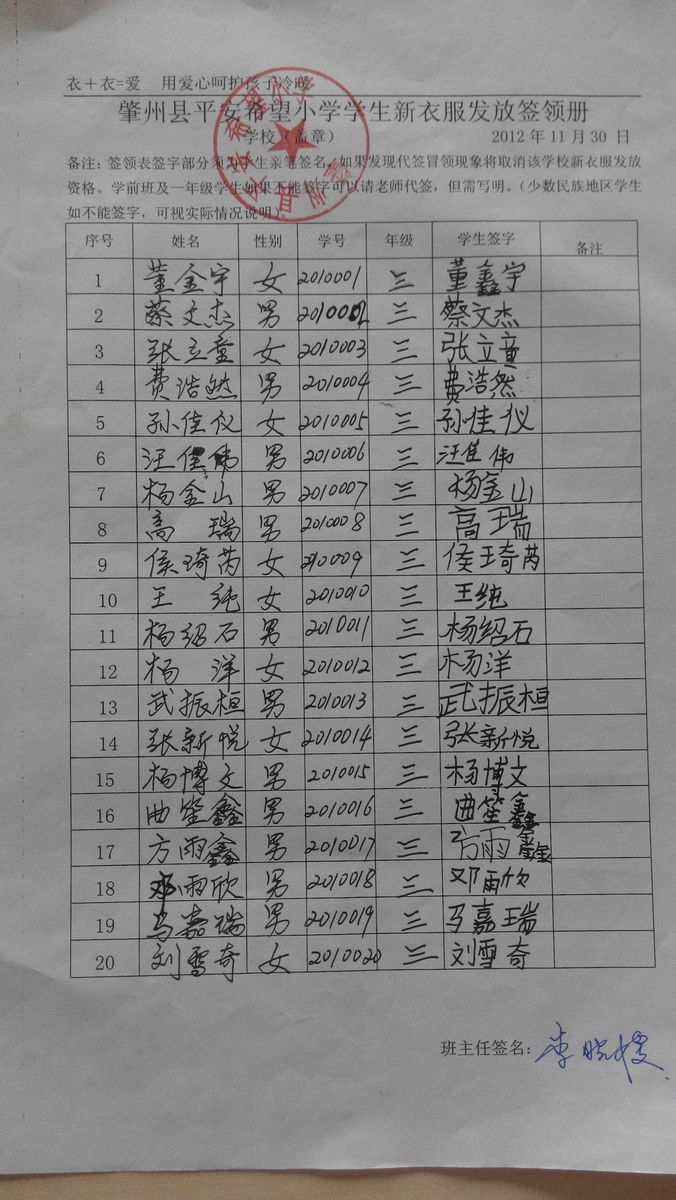 衣＋衣=爱 用爱心呵护孩子冷暖
肇州县平安希望小学学生新衣服发放签领册
学校（盖章） 2012年11月30日
备注：签领表签字部分须为学生亲笔签名，如果发现代签冒领现象将取消该学校新衣服发放
资格。学前班及一年级学生如果不能签字可以请老师代签，但需写明。（少数民族地区学生
如不能签字，可视实际情况说明）。
序号 姓名 性别 学号 年级 学生签字 备注
1 董金宇 女 2010001 三 董鑫宇
2 蔡文杰 男 2010002 三 蔡文杰
3 张立童 女 2010003 三 张立童
4 费浩然 男 2010004 三 费浩然
5 孙佳仪 女 2010005 三 孙佳仪
6 汪佳伟 男 2010006 三 汪佳伟
7 杨金山 男 2010007 三 杨金山
8 高瑞 男 2010008 三 高瑞
9 侯琦芮 女 2010009 三 侯琦芮
10 王纯 女 2010010 三 王纯
11 杨绍石 男 2010011 三 杨绍石
12 杨洋 女 2010012 三 杨洋
13 武振桓 男 2010013 三 武振桓
14 张新悦 女 2010014 三 张新悦
15 杨博文 男 2010015 三 杨博文
16 曲笙鑫 男 2010016 三 曲笙鑫
17 方雨鑫 男 2010017 三 方雨鑫
18 邓雨欣 男 2010018 三 邓雨欣
19 马嘉瑞 男 2010019 三 马嘉瑞
20 刘雪奇 女 2010020 三 刘雪奇
班主任签名：李